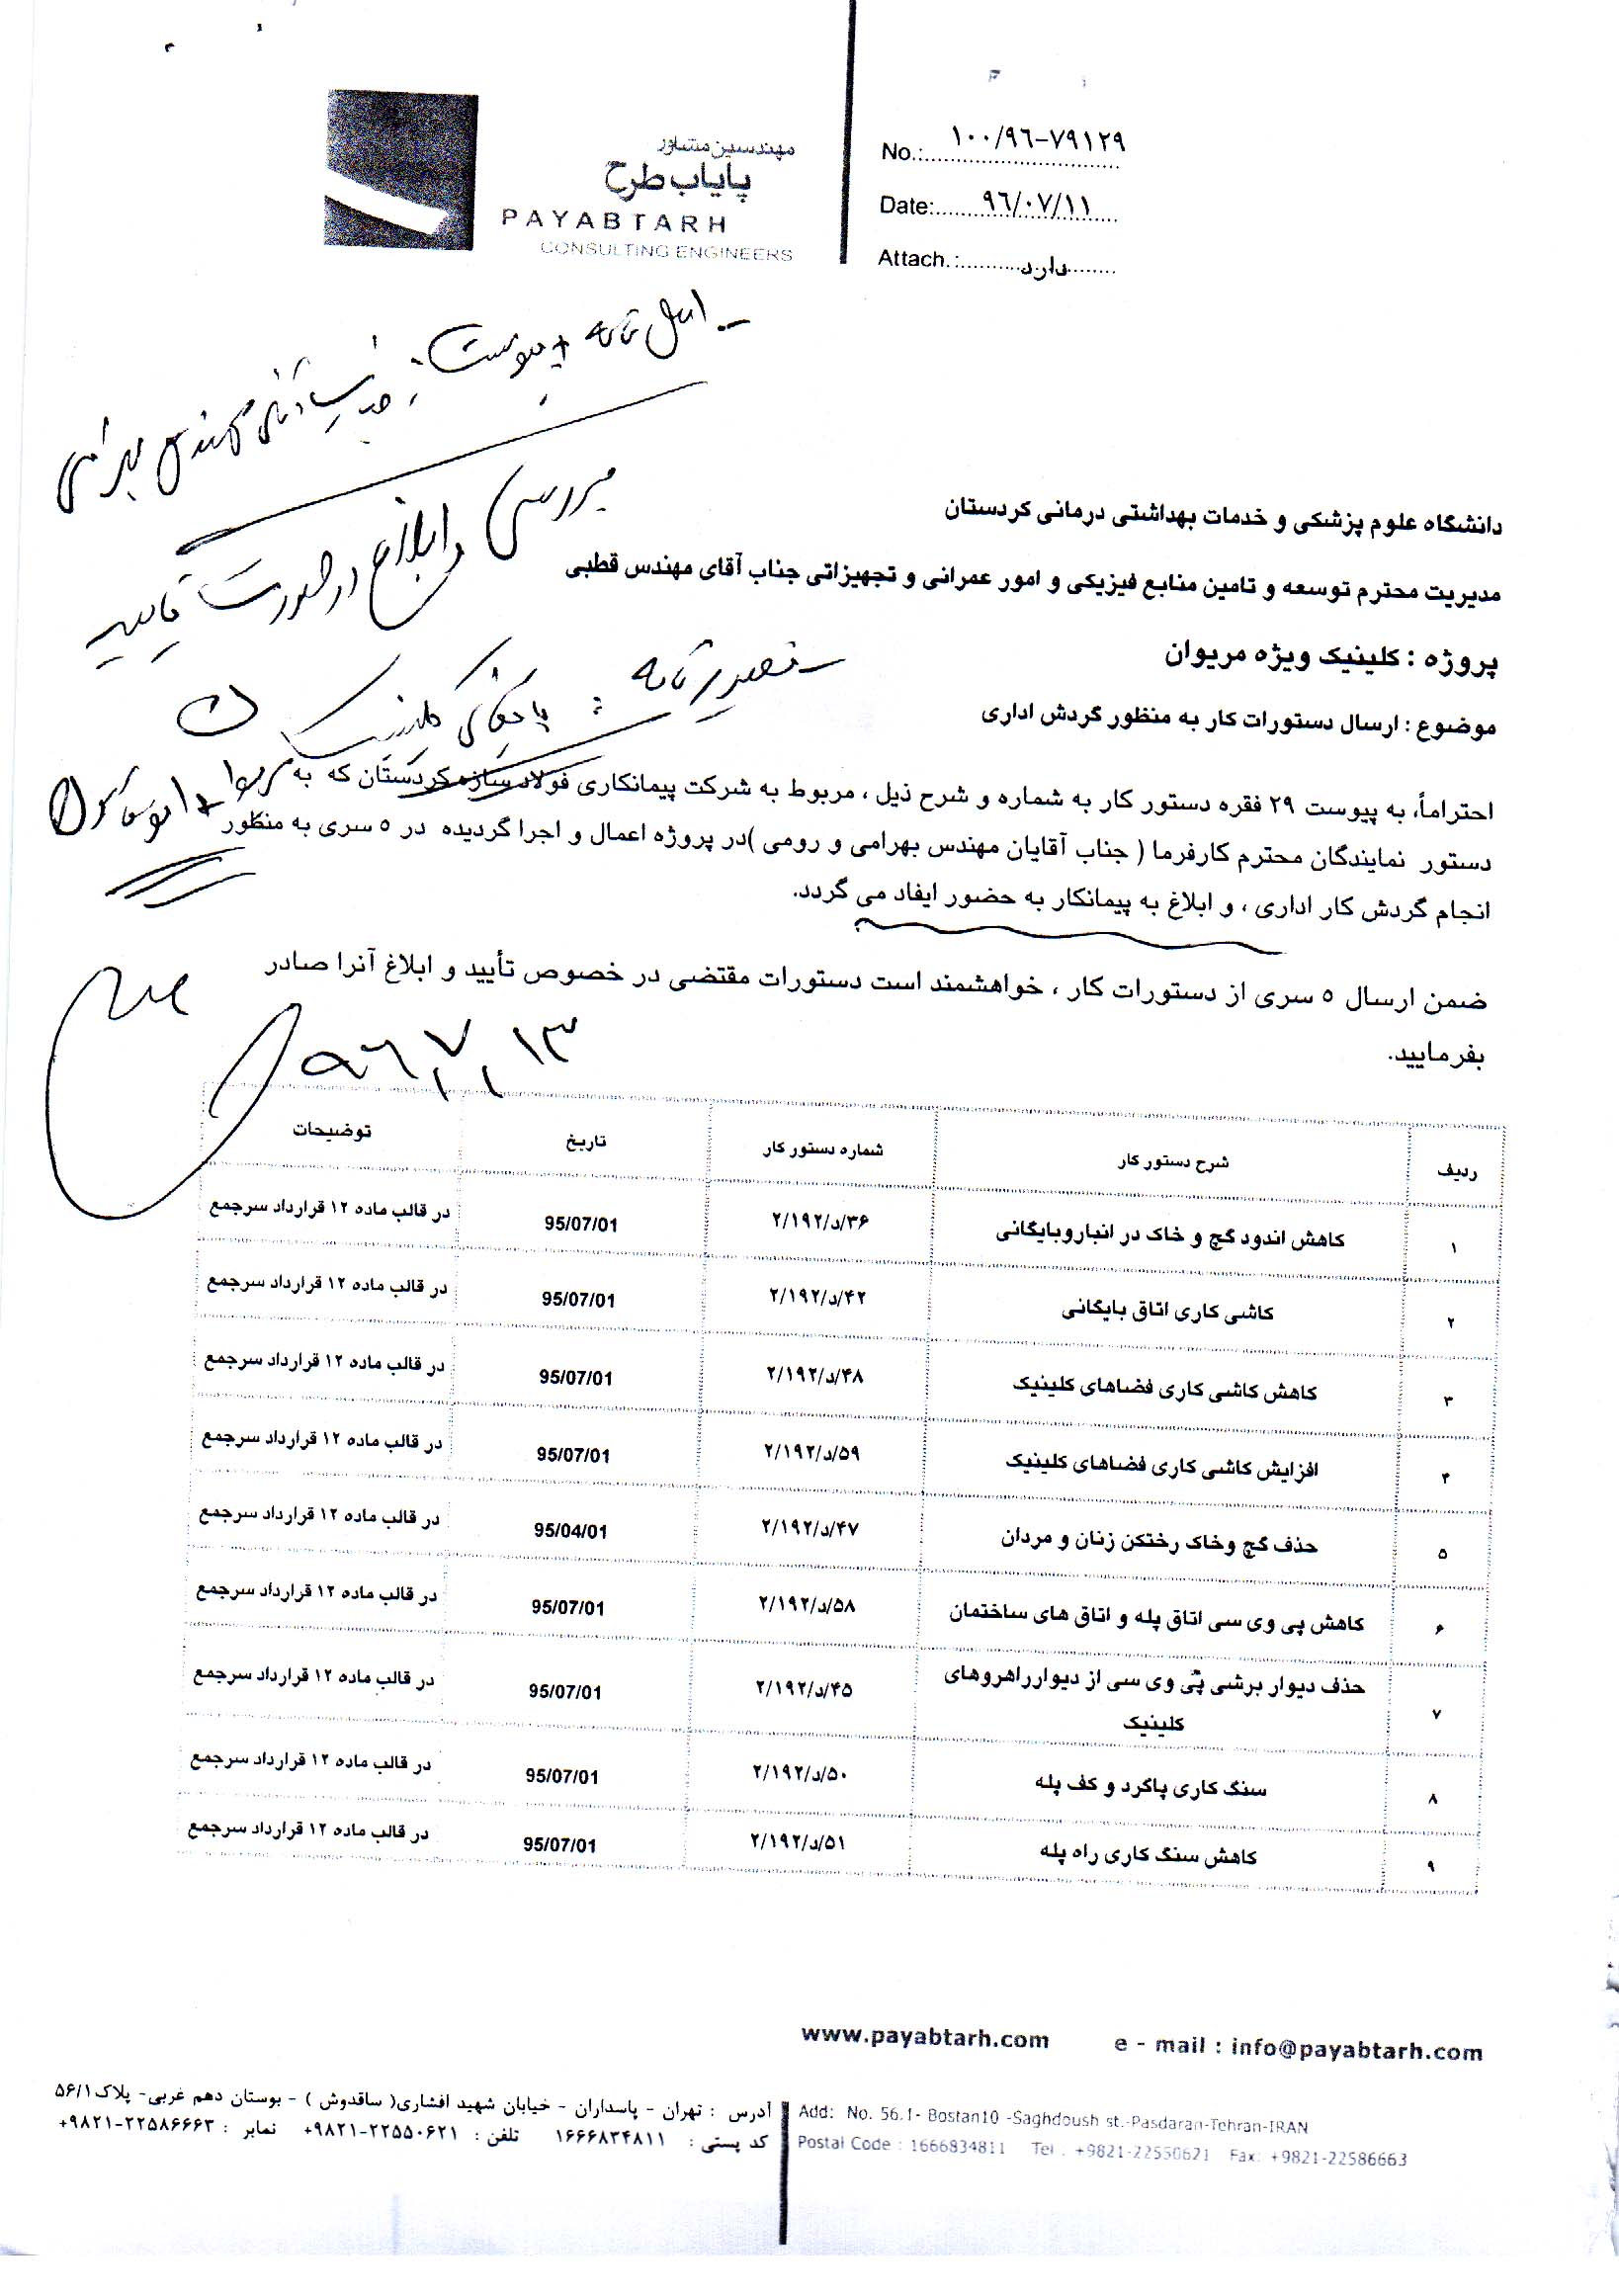 مهندسین مشاور
پایاب طرح
PAYABTARH
CONSULTING ENGINEERS
No.: ۱۰۰/۹۶-۷۹۱۲۹
Date: ۹۶/۰۷/۱۱
Attach.: دارد
اصل نامه + پیوست: جناب آقای مهندس بهرامی
بررسی و ابلاغ در صورت تایید
تصویر نامه: بایگانی کلینیک
دانشگاه علوم پزشکی و خدمات بهداشتی درمانی کردستان
مدیریت محترم توسعه و تامین منابع فیزیکی و امور عمرانی و تجهیزاتی جناب آقای مهندس قطبی
پروژه : کلینیک ویژه مریوان
موضوع : ارسال دستورات کار به منظور گردش اداری
احتراماً، به پیوست ۲۹ فقره دستور کار به شماره و شرح ذیل ، مربوط به شرکت پیمانکاری فولاد سازه کردستان که به
دستور نمایندگان محترم کارفرما ( جناب آقایان مهندس بهرامی و رومی )در پروژه اعمال و اجرا گردیده در ۵ سری به منظور
انجام گردش کار اداری ، و ابلاغ به پیمانکار به حضور ایفاد می گردد.
ضمن ارسال ۵ سری از دستورات کار ، خواهشمند است دستورات مقتضی در خصوص تأیید و ابلاغ آنرا صادر
بفرمایید.
۹۶/۷/۱۳
ردیف شرح دستور کار شماره دستور کار تاریخ توضیحات
۱ کاهش اندود گچ و خاک در انباروبایگانی ۲/۱۹۲/د/۳۶ 95/07/01 در قالب ماده ۱۲ قرارداد سرجمع
۲ کاشی کاری اتاق بایگانی ۲/۱۹۲/د/۴۲ 95/07/01 در قالب ماده ۱۲ قرارداد سرجمع
۳ کاهش کاشی کاری فضاهای کلینیک ۲/۱۹۲/د/۴۸ 95/07/01 در قالب ماده ۱۲ قرارداد سرجمع
۴ افزایش کاشی کاری فضاهای کلینیک ۲/۱۹۲/د/۵۹ 95/07/01 در قالب ماده ۱۲ قرارداد سرجمع
۵ حذف گچ وخاک رختکن زنان و مردان ۲/۱۹۲/د/۴۷ 95/04/01 در قالب ماده ۱۲ قرارداد سرجمع
۶ کاهش پی وی سی اتاق پله و اتاق های ساختمان ۲/۱۹۲/د/۵۸ 95/07/01 در قالب ماده ۱۲ قرارداد سرجمع
۷ حذف دیوار برشی پی وی سی از دیوارراهروهای کلینیک ۲/۱۹۲/د/۴۵ 95/07/01 در قالب ماده ۱۲ قرارداد سرجمع
۸ سنگ کاری پاگرد و کف پله ۲/۱۹۲/د/۵۰ 95/07/01 در قالب ماده ۱۲ قرارداد سرجمع
۹ کاهش سنگ کاری راه پله ۲/۱۹۲/د/۵۱ 95/07/01 در قالب ماده ۱۲ قرارداد سرجمع
www.payabtarh.com e - mail : info@payabtarh.com
آدرس : تهران - پاسداران - خیابان شهید افشاری( ساقدوش ) - بوستان دهم غربی- پلاک۵۶/۱
کد پستی : ۱۶۶۶۸۳۴۸۱۱ تلفن : ۲۲۵۵۰۶۲۱-۹۸۲۱+ نمابر : ۲۲۵۸۶۶۶۳-۹۸۲۱+
Add: No. 56.1- Bostan10 -Saghdoush st.-Pasdaran-Tehran-IRAN
Postal Code : 1666834811 Tel : +9821-22550621 Fax: +9821-22586663